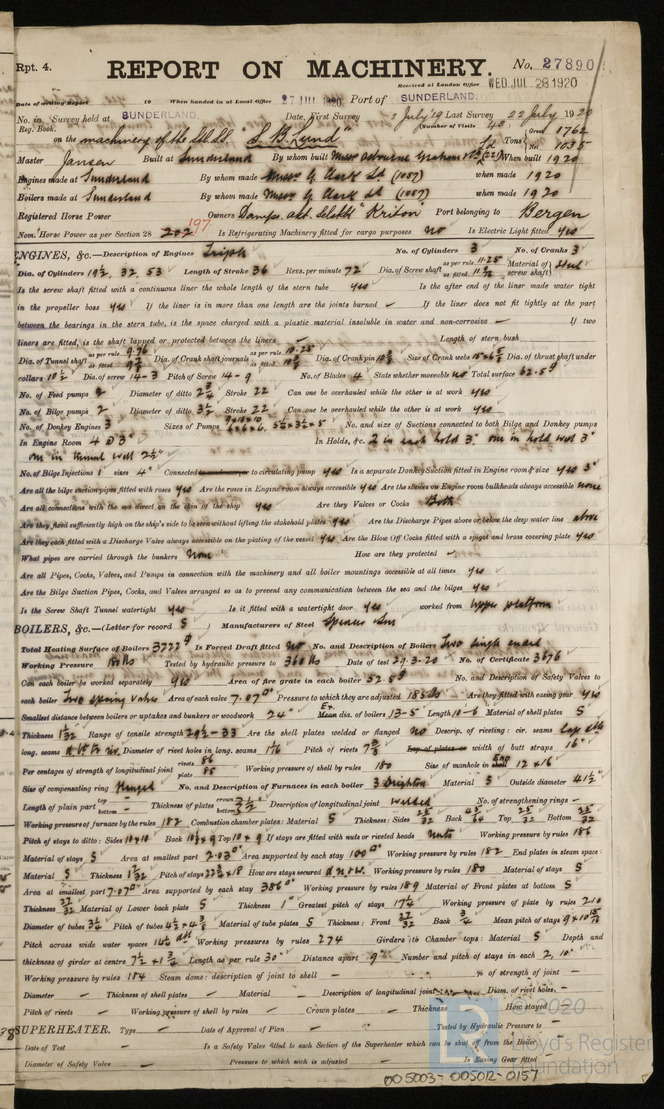 Rpt. 4.
REPORT ON MACHINERY.
No. 27890
Received at London Office WED. JUL. 28 1920
Date of writing Report 19 When handed in at Local Office 27 JUL 1920 Port of SUNDERLAND
No. in Survey held at SUNDERLAND. Date, First Survey July '19 Last Survey 22 July 1920
Reg. Book. (Number of Visits 48)
on the machinery of the "L. B. Lund" Tons Gross 1762 Net 1035
Master Jansen Built at Sunderland By whom built Messrs Osbourne Graham When built 1920
Engines made at Sunderland By whom made Messrs G. Clark Ld (1087) when made 1920
Boilers made at Sunderland By whom made Messrs G. Clark Ld (1087) when made 1920
Registered Horse Power Owners Damps. akt. "Kriton" Port belonging to Bergen
Nom. Horse Power as per Section 28 202 197 Is Refrigerating Machinery fitted for cargo purposes no Is Electric Light fitted yes
ENGINES, &c.—Description of Engines Triple No. of Cylinders 3 No. of Cranks 3
Dia. of Cylinders 19½, 32, 53 Length of Stroke 36 Revs. per minute 72 Dia. of Screw shaft as per rule 11.25 as fitted 11½ Material of screw shaft Steel
Is the screw shaft fitted with a continuous liner the whole length of the stern tube yes Is the after end of the liner made water tight
in the propeller boss yes If the liner is in more than one length are the joints burned – If the liner does not fit tightly at the part
between the bearings in the stern tube, is the space charged with a plastic material insoluble in water and non-corrosive – If two
liners are fitted, is the shaft lapped or protected between the liners – Length of stern bush
Dia. of Tunnel shaft as per rule 9.76 Dia. of Crank shaft journals as per rule 10.25 Dia. of Crank pin Size of Crank webs Dia. of thrust shaft under
collars 10½ Dia. of screw 14-3 Pitch of Screw 14-9 No. of Blades 4 State whether moveable no Total surface 62.5
No. of Feed pumps 2 Diameter of ditto 2¾ Stroke 22 Can one be overhauled while the other is at work yes
No. of Bilge pumps 2 Diameter of ditto 3½ Stroke 22 Can one be overhauled while the other is at work yes
No. of Donkey Engines 3 Sizes of Pumps 6×6×6, 5½×3½×5 No. and size of Suctions connected to both Bilge and Donkey pumps
In Engine Room 4 @ 3" In Holds, &c. 2 in each hold 3" one in hold well 3"
one in tunnel well 2½"
No. of Bilge Injections 1 sizes 4" Connected to circulating pump yes Is a separate Donkey Suction fitted in Engine room & size yes 3"
Are all the bilge suction pipes fitted with roses yes Are the roses in Engine room always accessible yes Are the sluices on Engine room bulkheads always accessible none
Are all connections with the sea direct on the skin of the ship yes Are they Valves or Cocks Both
Are they fixed sufficiently high on the ship's side to be seen without lifting the stokehold plates yes Are the Discharge Pipes above or below the deep water line above
Are they each fitted with a Discharge Valve always accessible on the plating of the vessel yes Are the Blow Off Cocks fitted with a spigot and brass covering plate yes
What pipes are carried through the bunkers None How are they protected
Are all Pipes, Cocks, Valves, and Pumps in connection with the machinery and all boiler mountings accessible at all times yes
Are the Bilge Suction Pipes, Cocks, and Valves arranged so as to prevent any communication between the sea and the bilges yes
Is the Screw Shaft Tunnel watertight yes Is it fitted with a watertight door yes worked from Upper platform
BOILERS, &c.—(Letter for record S) Manufacturers of Steel Spencer
Total Heating Surface of Boilers 3772 Is Forced Draft fitted no No. and Description of Boilers Two single ended
Working Pressure 180 lbs Tested by hydraulic pressure to 360 lbs Date of test 29.3.20 No. of Certificate 3876
Can each boiler be worked separately yes Area of fire grate in each boiler 52.5 No. and Description of Safety Valves to
each boiler Two spring valves Area of each valve 7.07 Pressure to which they are adjusted 185 lbs Are they fitted with easing gear yes
Smallest distance between boilers or uptakes and bunkers or woodwork 24" Mean dia. of boilers 13-5 Length 10-6 Material of shell plates S
Thickness Range of tensile strength 29½–33 Are the shell plates welded or flanged no Descrip. of riveting: cir. seams lap
long. seams Diameter of rivet holes in long. seams Pitch of rivets 7⅜ width of butt straps 16"
Per centages of strength of longitudinal joint rivets 86 plate 85 Working pressure of shell by rules 180 Size of manhole in end 12 × 16
Size of compensating ring flanged No. and Description of Furnaces in each boiler 3 Deighton Material S Outside diameter 41½"
Length of plain part top bottom Thickness of plates crown bottom Description of longitudinal joint welded No. of strengthening rings –
Working pressure of furnace by the rules 182 Combustion chamber plates: Material S Thickness: Sides Back Top Bottom
Pitch of stays to ditto: Sides 10×10 Back 10½×9 Top 10×9 If stays are fitted with nuts or riveted heads nuts Working pressure by rules 186
Material of stays S Area at smallest part 2.03 Area supported by each stay 100 Working pressure by rules 182 End plates in steam space:
Material S Thickness Pitch of stays How are stays secured Working pressure by rules 180 Material of stays S
Area at smallest part 7.07 Area supported by each stay 386 Working pressure by rules 189 Material of Front plates at bottom S
Thickness 27/32 Material of Lower back plate S Thickness 1" Greatest pitch of stays 17¼ Working pressure of plate by rules 210
Diameter of tubes 3¼ Pitch of tubes Material of tube plates S Thickness: Front 27/32 Back ¾ Mean pitch of stays
Pitch across wide water spaces Working pressures by rules 274 Girders to Chamber tops: Material S Depth and
thickness of girder at centre Length as per rule 30" Distance apart 9" Number and pitch of stays in each 2, 10"
Working pressure by rules 184 Steam dome: description of joint to shell – % of strength of joint –
Diameter – Thickness of shell plates – Material – Description of longitudinal joint Diam. of rivet holes –
Pitch of rivets – Working pressure of shell by rules – Crown plates – Thickness How stayed
SUPERHEATER. Type – Date of Approval of Plan – Tested by Hydraulic Pressure to –
Date of Test – Is a Safety Valve fitted to each Section of the Superheater which can be shut off from the Boiler
Diameter of Safety Valve – Pressure to which each is adjusted – Is Easing Gear fitted –
LR
© 2020
Lloyd's Register
Foundation
005003-005012-0157